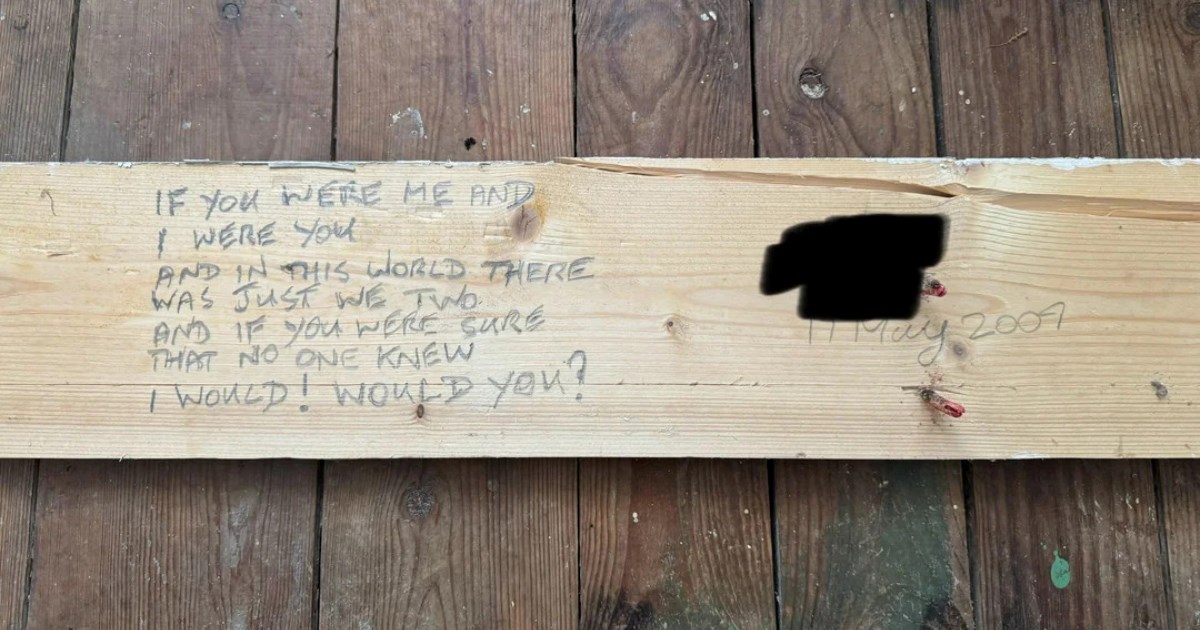 IF YOU WERE ME AND
I WERE YOU
AND IN THIS WORLD THERE
WAS JUST WE TWO.
AND IF YOU WERE SURE
THAT NO ONE KNEW
I WOULD! WOULD YOU?
May 2009